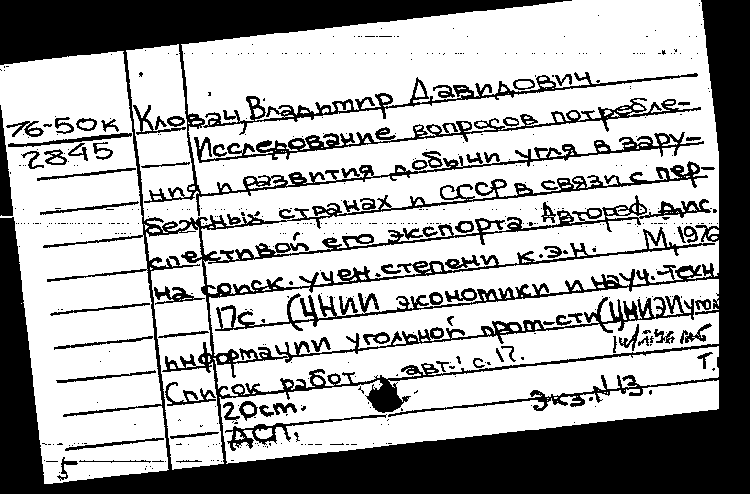 76-50к
2845
Клован, Владимир Давидович.
Исследование вопросов потребле-
ния и развития добычи угля в зару-
бежных странах и СССР в связи с пер-
спективой его экспорта. Автореф. дис.
на соиск. учен. степени к.э.н. М., 1976
17с. (ЦНИИ экономики и науч.-техн.
информации угольной пром-сти (ЦНИЭИуголь
Список работ авт.: с. 17.
Т.
20 ст.
Экз. N 13.
ДСП.
5